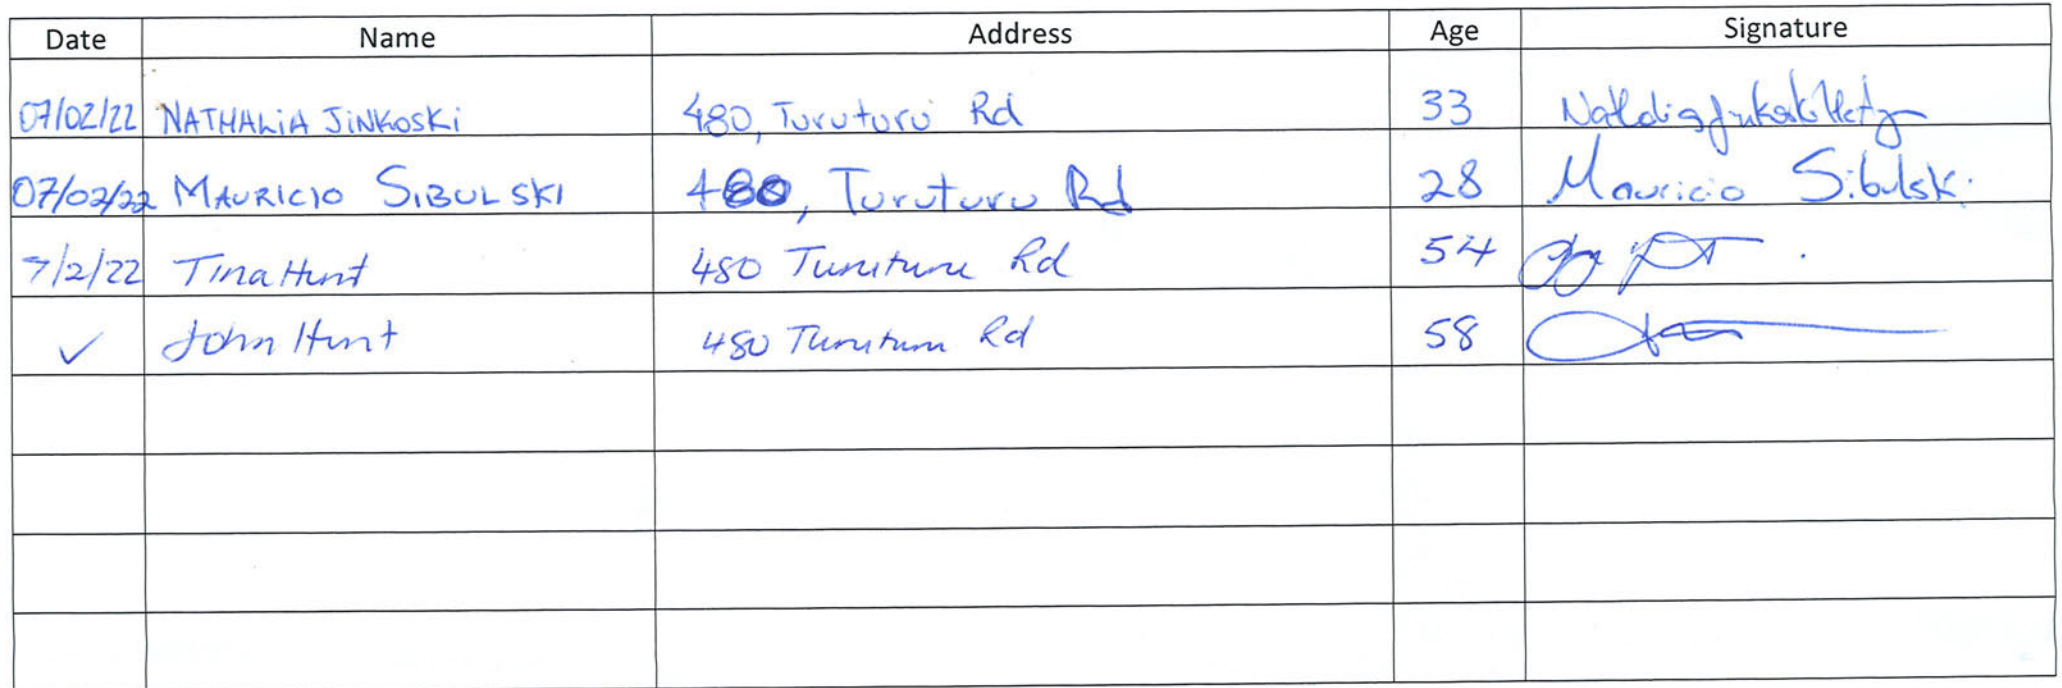 Date Name Address Age Signature
07/02/22 NATHALIA JINKOSKI 480, Turuturu Rd 33
07/02/22 MAURICIO SIBULSKI 480, Turuturu Rd 28 Mauricio Sibulski
7/2/22 Tina Hunt 480 Turuturu Rd 54
✓ John Hunt 480 Turuturu Rd 58